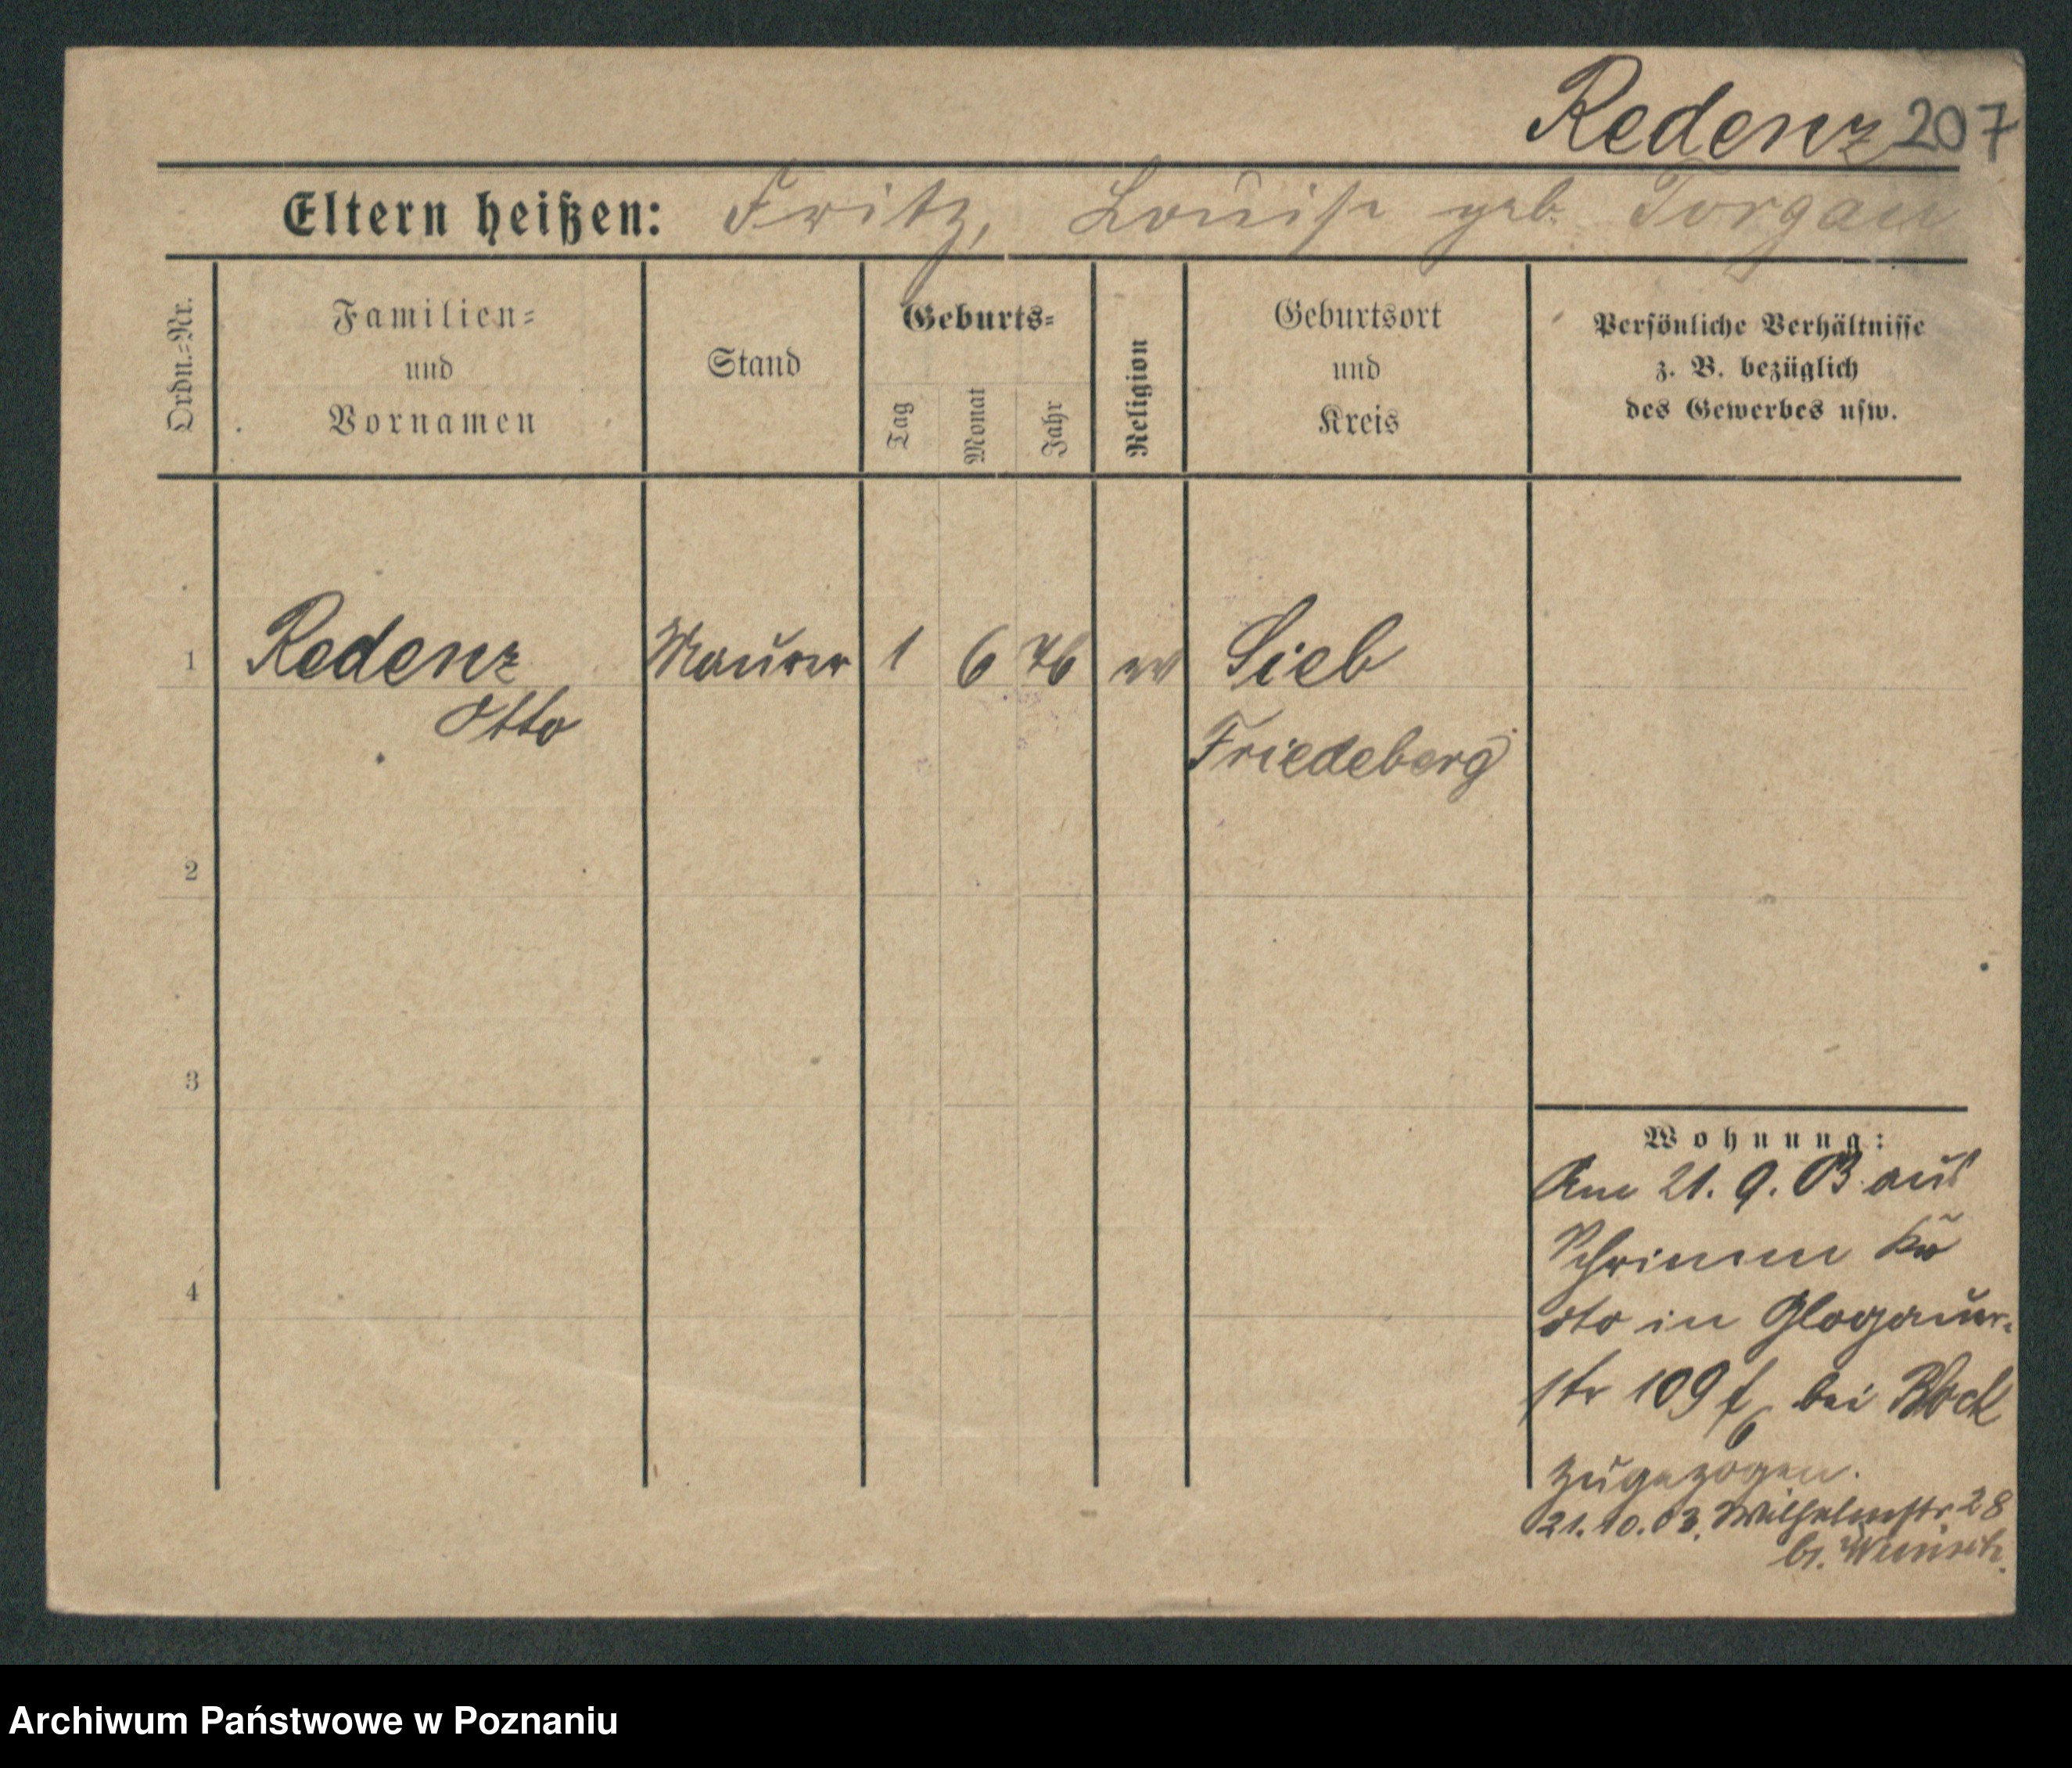 Redenz 207
Eltern heißen: Fritz, Louise geb. Torgau
Ordn.=Nr.
Familien=
und
Vornamen
Stand
Geburts=
Tag
Monat
Jahr
Religion
Geburtsort
und
Kreis
Persönliche Verhältnisse
z. B. bezüglich
des Gewerbes usw.
1 Redenz Maurer 1 6 76 ev Lieb
Otto Friedeberg
2
3
4
Wohnung:
Am 21. 9. 03 aus
Schrimm
in Glogauer-
str 109 f bei Block
zugezogen.
21. 10. 03. Wilhelmstr 28
b.
Archiwum Państwowe w Poznaniu